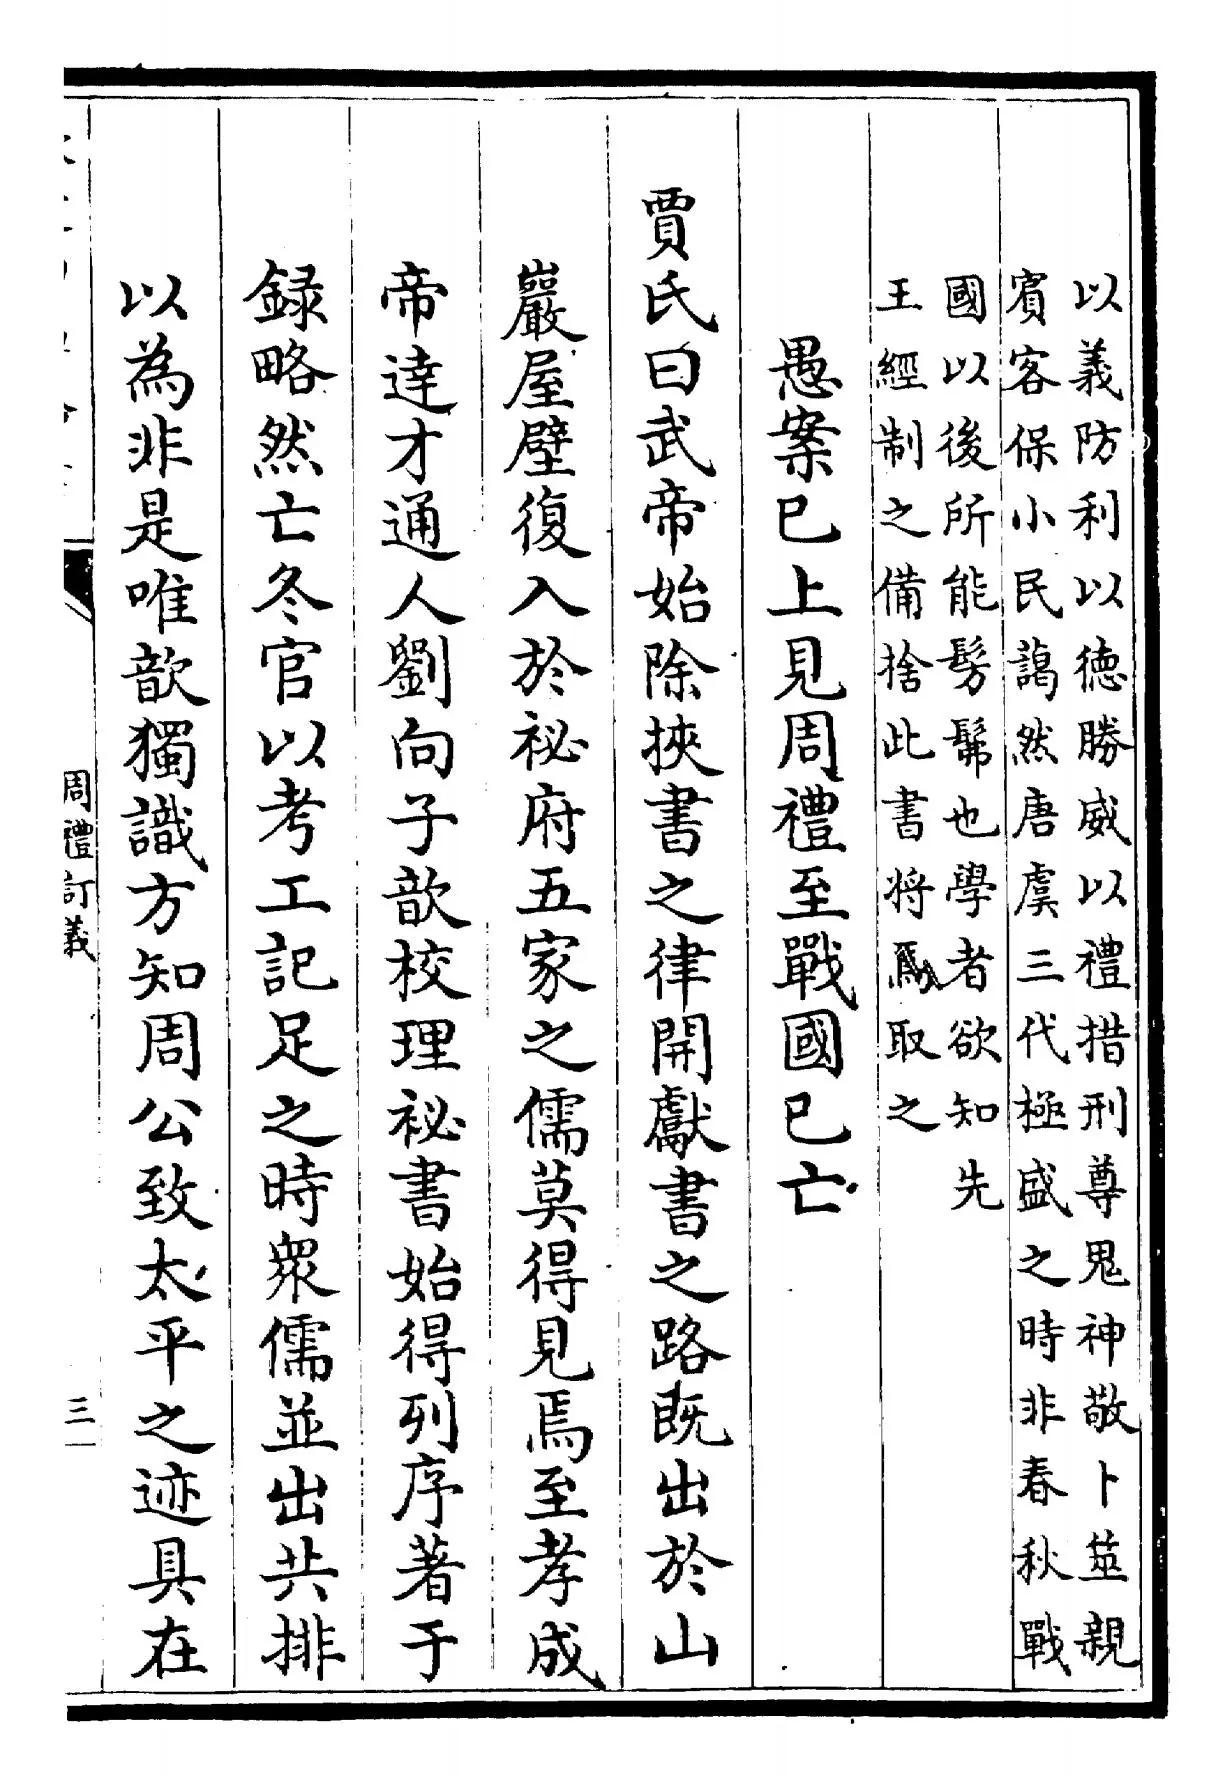 以義防利以德勝威以禮措刑尊鬼神敬卜筮親
賓客保小民藹然唐虞三代極盛之時非春秋戰
國以後所能髣髴也學者欲知先
王經制之備捨此書將焉取之
愚案已上見周禮至戰國已亡
賈氏曰武帝始除挾書之律開獻書之路既出於山
巖屋壁復入於祕府五家之儒莫得見焉至孝成
帝達才通人劉向子歆校理祕書始得列序著于
録略然亡冬官以考工記足之時衆儒並出共排
以為非是唯歆獨識方知周公致太平之迹具在
周禮訂義
三